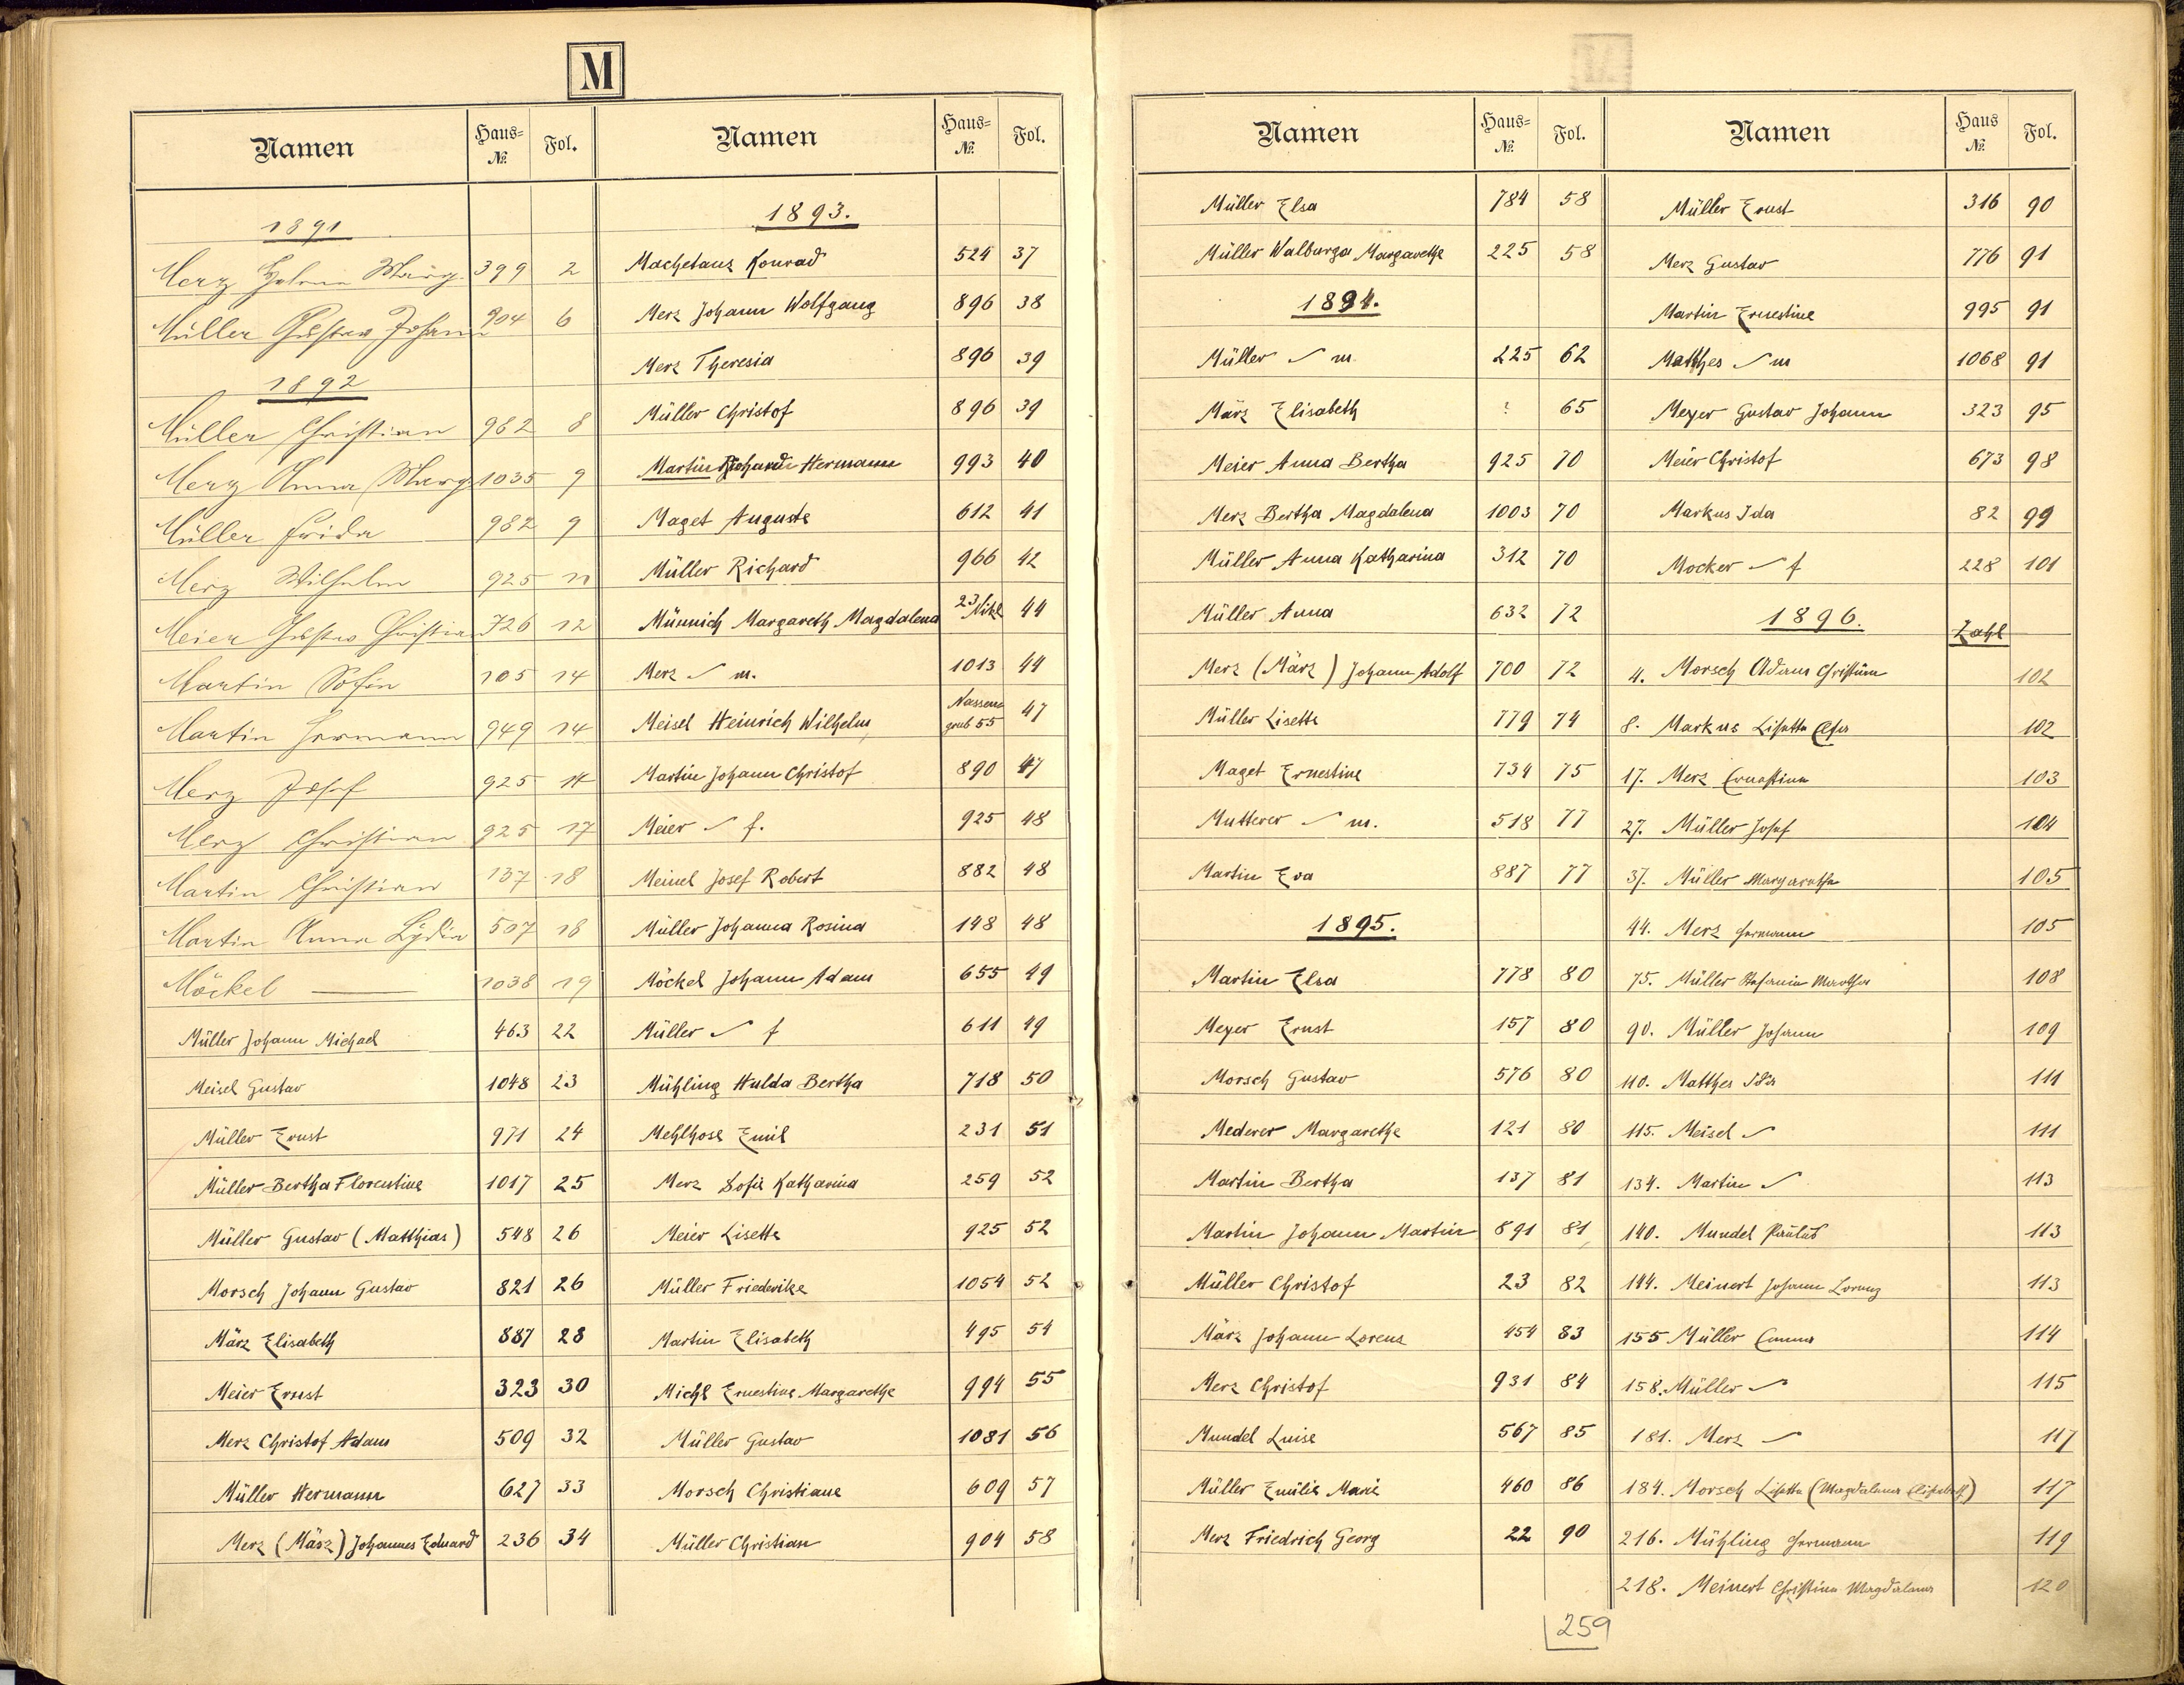 M
Namen Haus-№ Fol.
1891
Merz Helena Marg. 399 2
Müller Gustav Johann 904 6
1892
Müller Christian 982 8
Merz Anna Marg 1035 9
Müller Frida 982 9
Merz Wilhelm 925 11
Meier Gustav Christian 726 12
Martin Sofie 105 14
Martin Hermann 949 14
Merz Josef 925 14
Merz Christian 925 17
Martin Christian 137 18
Martin Anna Lydia 507 18
Möckel — 1038 19
Müller Johann Michael 463 22
Meisel Gustav 1048 23
Müller Ernst 971 24
Müller Bertha Florentine 1017 25
Müller Gustav (Matthias) 548 26
Morsch Johann Gustav 821 26
März Elisabeth 887 28
Meier Ernst 323 30
Merz Christof Adam 509 32
Müller Hermann 627 33
Merz (März) Johannes Eduard 236 34
Namen Haus-№ Fol.
1893.
Machetanz Konrad 524 37
Merz Johann Wolfgang 896 38
Merz Theresia 896 39
Müller Christof 896 39
Martin Richard Hermann 993 40
Maget Auguste 612 41
Müller Richard 966 42
Münnich Margareth Magdalena 23 Nikl 44
Merz m. 1013 44
Meisel Heinrich Wilhelm Nassengrub 55 47
Martin Johann Christof 890 47
Meier f. 925 48
Meinel Josef Robert 882 48
Müller Johanna Rosina 148 48
Möckel Johann Adam 655 49
Müller f 611 49
Mühling Hulda Bertha 718 50
Mehlhose Emil 231 51
Merz Sofie Katharina 259 52
Meier Lisette 925 52
Müller Friederike 1054 52
Martin Elisabeth 495 54
Michl Ernestine Margarethe 994 55
Müller Gustav 1081 56
Morsch Christiane 609 57
Müller Christian 904 58
Namen Haus-№ Fol.
Müller Elsa 784 58
Müller Walburga Margarethe 225 58
1894.
Müller m. 225 62
März Elisabeth ? 65
Meier Anna Bertha 925 70
Merz Bertha Magdalena 1003 70
Müller Anna Katharina 312 70
Müller Anna 632 72
Merz (März) Johann Adolf 700 72
Müller Lisette 779 74
Maget Ernestine 734 75
Mutterer m. 518 77
Martin Eva 887 77
1895.
Martin Elsa 778 80
Meyer Ernst 157 80
Morsch Gustav 576 80
Mederer Margarethe 121 80
Martin Bertha 137 81
Martin Johann Martin 891 81
Müller Christof 23 82
März Johann Lorenz 454 83
Merz Christof 931 84
Mundel Luise 567 85
Müller Emilie Marie 460 86
Merz Friedrich Georg 22 90
Namen Haus № Fol.
Müller Ernst 316 90
Merz Gustav 776 91
Martin Ernestine 995 91
Matthes m 1068 91
Meyer Gustav Johann 323 95
Meier Christof 673 98
Markus Ida 82 99
Mocker f 228 101
1896. Zahl
4. Morsch Adam Christian 102
8. Markus Lisetta Elsa 102
17. Merz Ernestine 103
27. Müller Josef 104
37. Müller Margaretha 105
44. Merz Hermann 105
75. Müller Stefanie Martha 108
90. Müller Johann 109
110. Matthes Ida 111
115. Meisel 111
134. Martin 113
140. Mundel Paulus 113
144. Meinert Johann Lorenz 113
155 Müller Emma 114
158. Müller 115
181. Merz 117
184. Morsch Lisette (Magdalena Elisabeth) 117
216. Mühling Hermann 119
218. Meinert Christina Magdalena 120
259